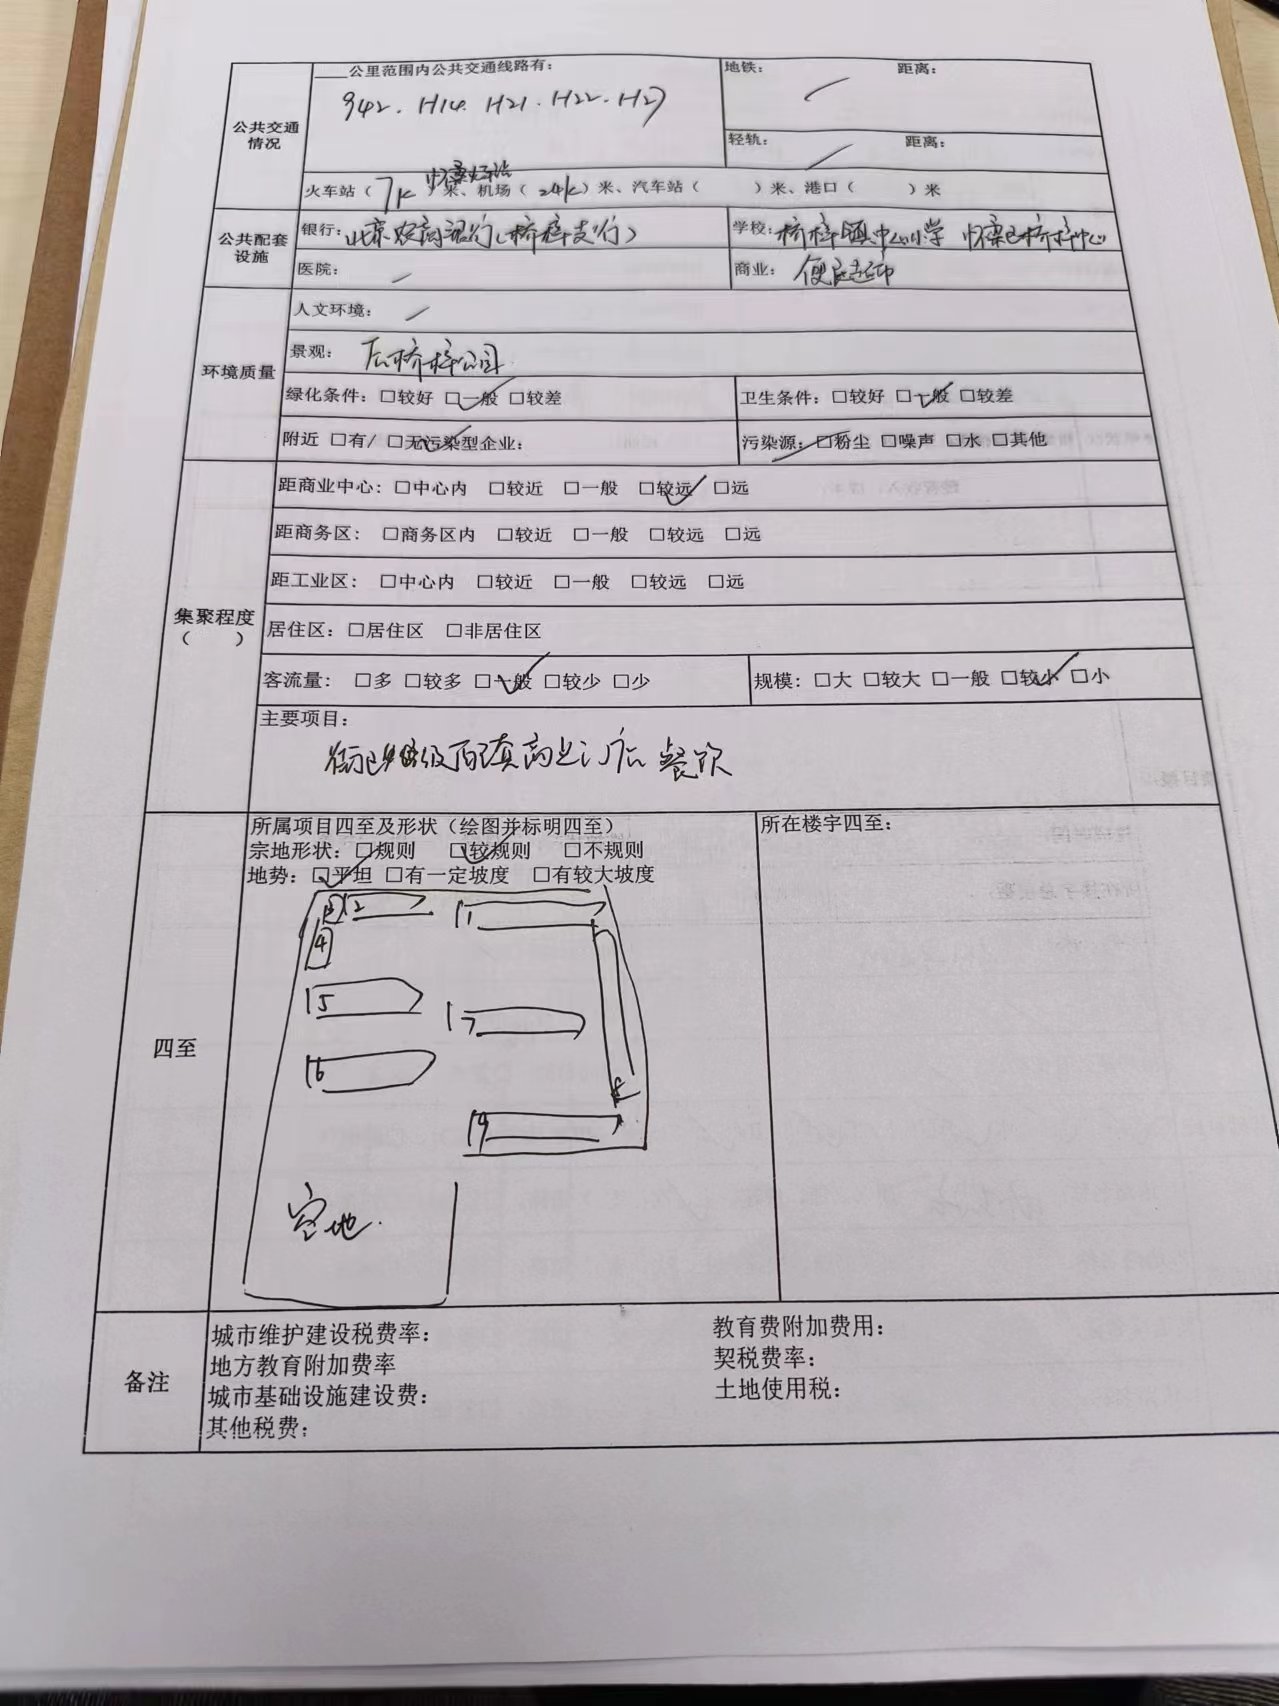 ____公里范围内公共交通线路有:
942. H14. H21. H22. H27
地铁: / 距离:
公共交通情况
轻轨: / 距离:
怀柔火车站
火车站（7k）米、机场（24k）米、汽车站（ ）米、港口（ ）米
公共配套设施
银行: 北京农商银行（桥梓支行）
学校: 桥梓镇中心小学 怀柔区桥梓中心
医院: /
商业: 便民超市
环境质量
人文环境: /
景观: 后桥梓公园
绿化条件: □较好 ☑一般 □较差
卫生条件: □较好 ☑一般 □较差
附近 □有/ ☑无污染型企业:
污染源: / □粉尘 □噪声 □水 □其他
集聚程度（ ）
距商业中心: □中心内 □较近 □一般 ☑较远 □远
距商务区: □商务区内 □较近 □一般 □较远 □远
距工业区: □中心内 □较近 □一般 □较远 □远
居住区: □居住区 □非居住区
客流量: □多 □较多 ☑一般 □较少 □少
规模: □大 □较大 □一般 ☑较小 □小
主要项目:
级配套商业门店 餐饮
四至
所属项目四至及形状（绘图并标明四至）
宗地形状: □规则 ☑较规则 □不规则
地势: ☑平坦 □有一定坡度 □有较大坡度
所在楼宇四至:
12
11
4
15
17
16
19
空地.
备注
城市维护建设税费率:
教育费附加费用:
地方教育附加费率
契税费率:
城市基础设施建设费:
土地使用税:
其他税费;